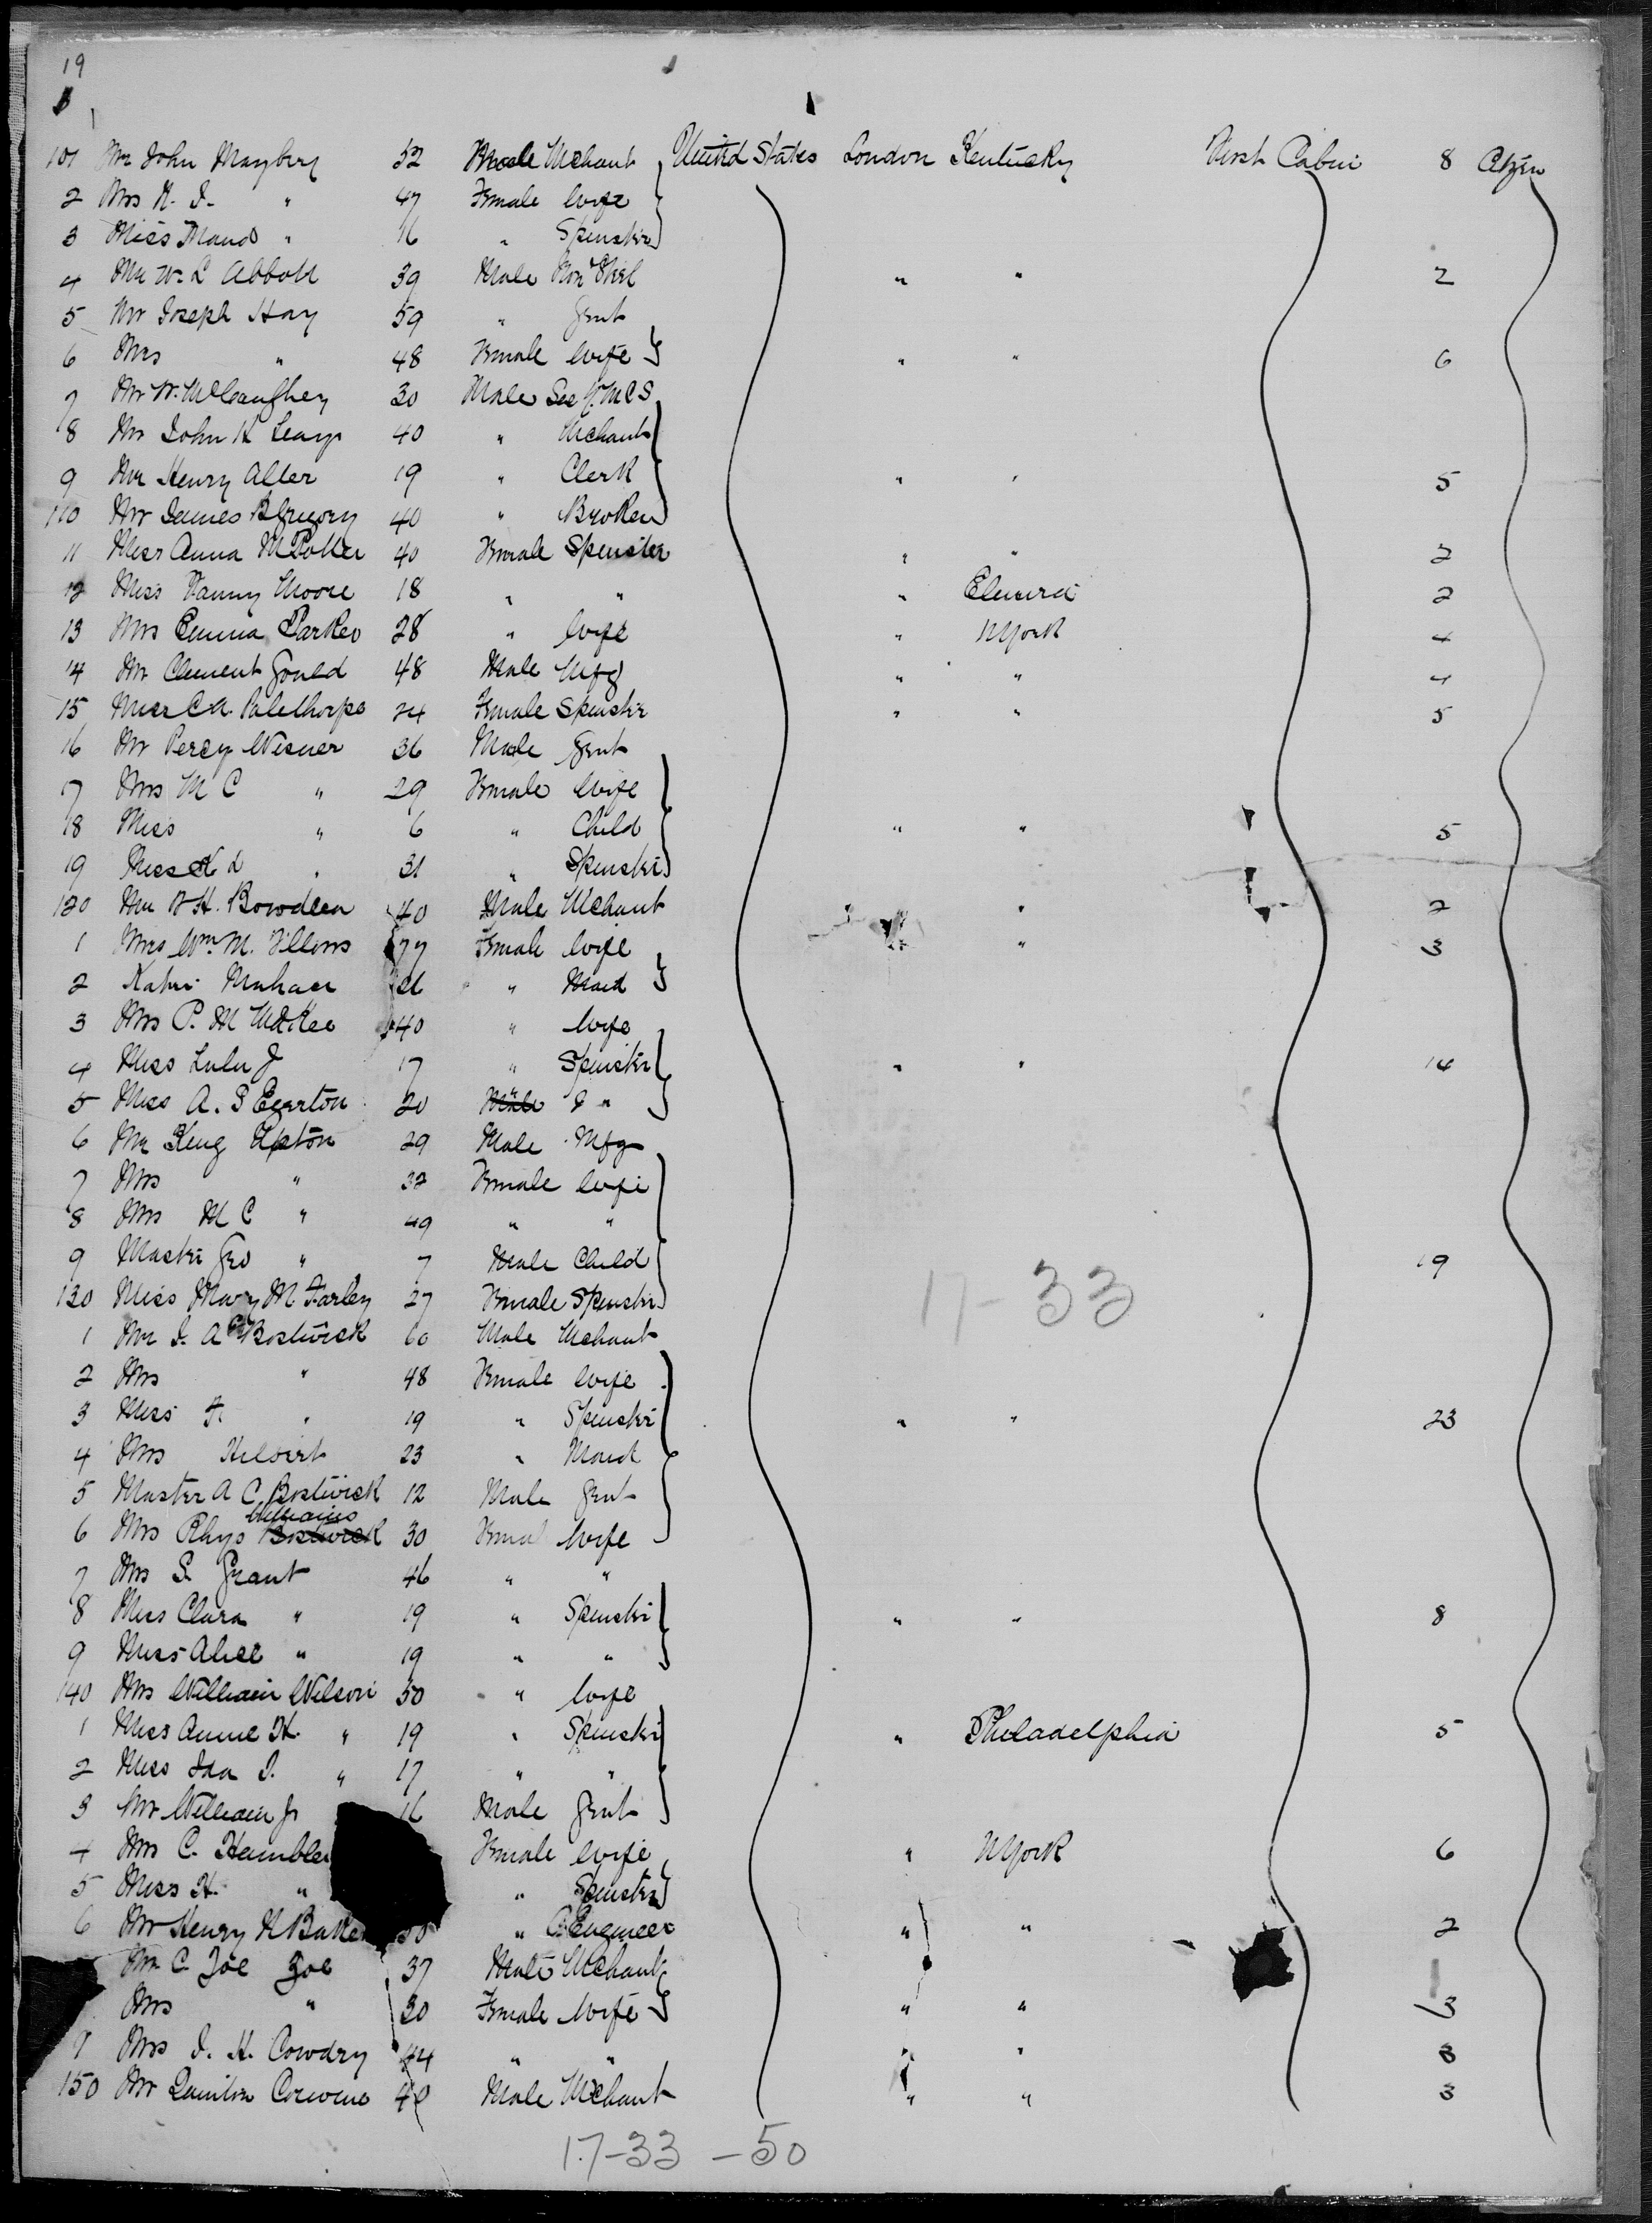 19
101 Mr John Mayberry 52 Male Mchant United States London Kentucky First Cabin 8 Citizen
2 Mrs K. J. " 47 Female Wife
3 Miss Maud " 16 " Spinster
4 Mr W. L Abbott 39 Male " " 2
5 Mr Joseph Hay 59 " Gent
6 Mrs " 48 Female Wife " " 6
7 Mr W. McCaughey 30 Male Sec
8 Mr John H Leays 40 " Mchant
9 Mr Henry Aller 19 " Clerk " " 5
110 Mr James B Gregory 40 " Broker
11 Miss Anna M Potter 40 Female Spinster " " 2
12 Miss Fanny Moore 18 " " " Elmira 2
13 Mrs Emma Parker 28 " Wife " NYork 4
14 Mr Clement Gould 48 Male Mfg " " 4
15 Miss C A. Palethorpe 24 Female Spinster " " 5
16 Mr Percy Wisner 36 Male Gent
7 Mrs M C " 29 Female Wife
18 Miss " 6 " Child " " 5
19 Miss L " 31 " Spinster
120 Mr H. Bowdlen 40 Male Mchant " 2
1 Mrs Wm M. 77 Female Wife " 3
2 Katie " Maid
3 Mrs P. M McKee 40 " Wife
4 Miss Lulu J 17 " Spinster " " 14
5 Miss A. S Egerton 20 Male F "
6 Mr King Upton 29 Male Mfg
7 Mrs " 32 Female Wife
8 Mrs M C " 49 " "
9 Master Geo " 7 Male Child 19
130 Miss Mary M Farley 27 Female Spinster
17-33
1 Mr J. A Bostwick 60 Male Mchant
2 Mrs " 48 Female Wife
3 Miss F. " 19 " Spinster " " 23
4 Mrs 23 " Maid
5 Master A C Bostwick 12 Male Gent
Williams
6 Mrs Rhys Bostwick 30 Femal Wife
7 Mrs S. Grant 46 " "
8 Miss Clara " 19 " Spinster " " 8
9 Miss Alice " 19 " "
140 Mrs William Wilson 50 " Wife
1 Miss Annie H. " 19 " Spinster " Philadelphia 5
2 Miss Ida J. " 17 " "
3 Mr William Jr 16 Male Gent
4 Mrs C. Female Wife " NYork 6
5 Miss H. " " Spinster
6 Mr Henry H Bake " C Engineer " " 2
Mr C. Zoe Zoe 37 Male Mchant
Mrs " 30 Female Wife " " 3
9 Mrs J. H. Cowdry 44 " " " " 3
150 Mr Quinton Corwine 40 Male Mchant " " 3
17-33-50